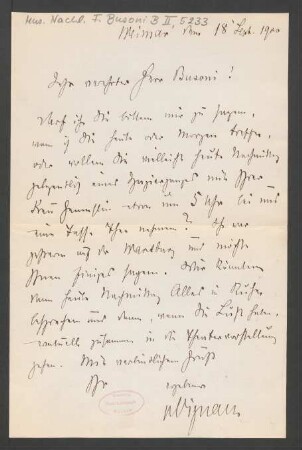 Mus. Nachl. F. Busoni B II, 5233
Weimar den 18 Sept. 1900
Sehr verehrter Herr Busoni!
Darf ich Sie bitten mir zu sagen,
wann ich Sie heute oder Morgen treffe,
oder wollen Sie vielleicht heute Nachmittag
gelegentlich eines Spazierganges mit Ihrer
Frau Gemahlin etwa um 5 Uhr bei uns
eine Tasse Thee nehmen? Ich war
gestern auf der Wartburg und möchte
Ihnen Einiges sagen. Wir könnten
dann heute Nachmittag Alles in Ruhe
besprechen und dann, wenn Sie Lust haben,
eventuell zusammen in die Theatervorstellung
gehen. Mit verbindlichem Gruß
Ihr ergebener
Vignau